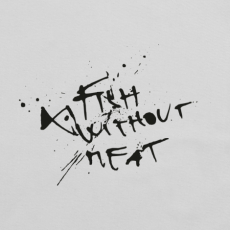 FISH
WITHOUT
MEAT